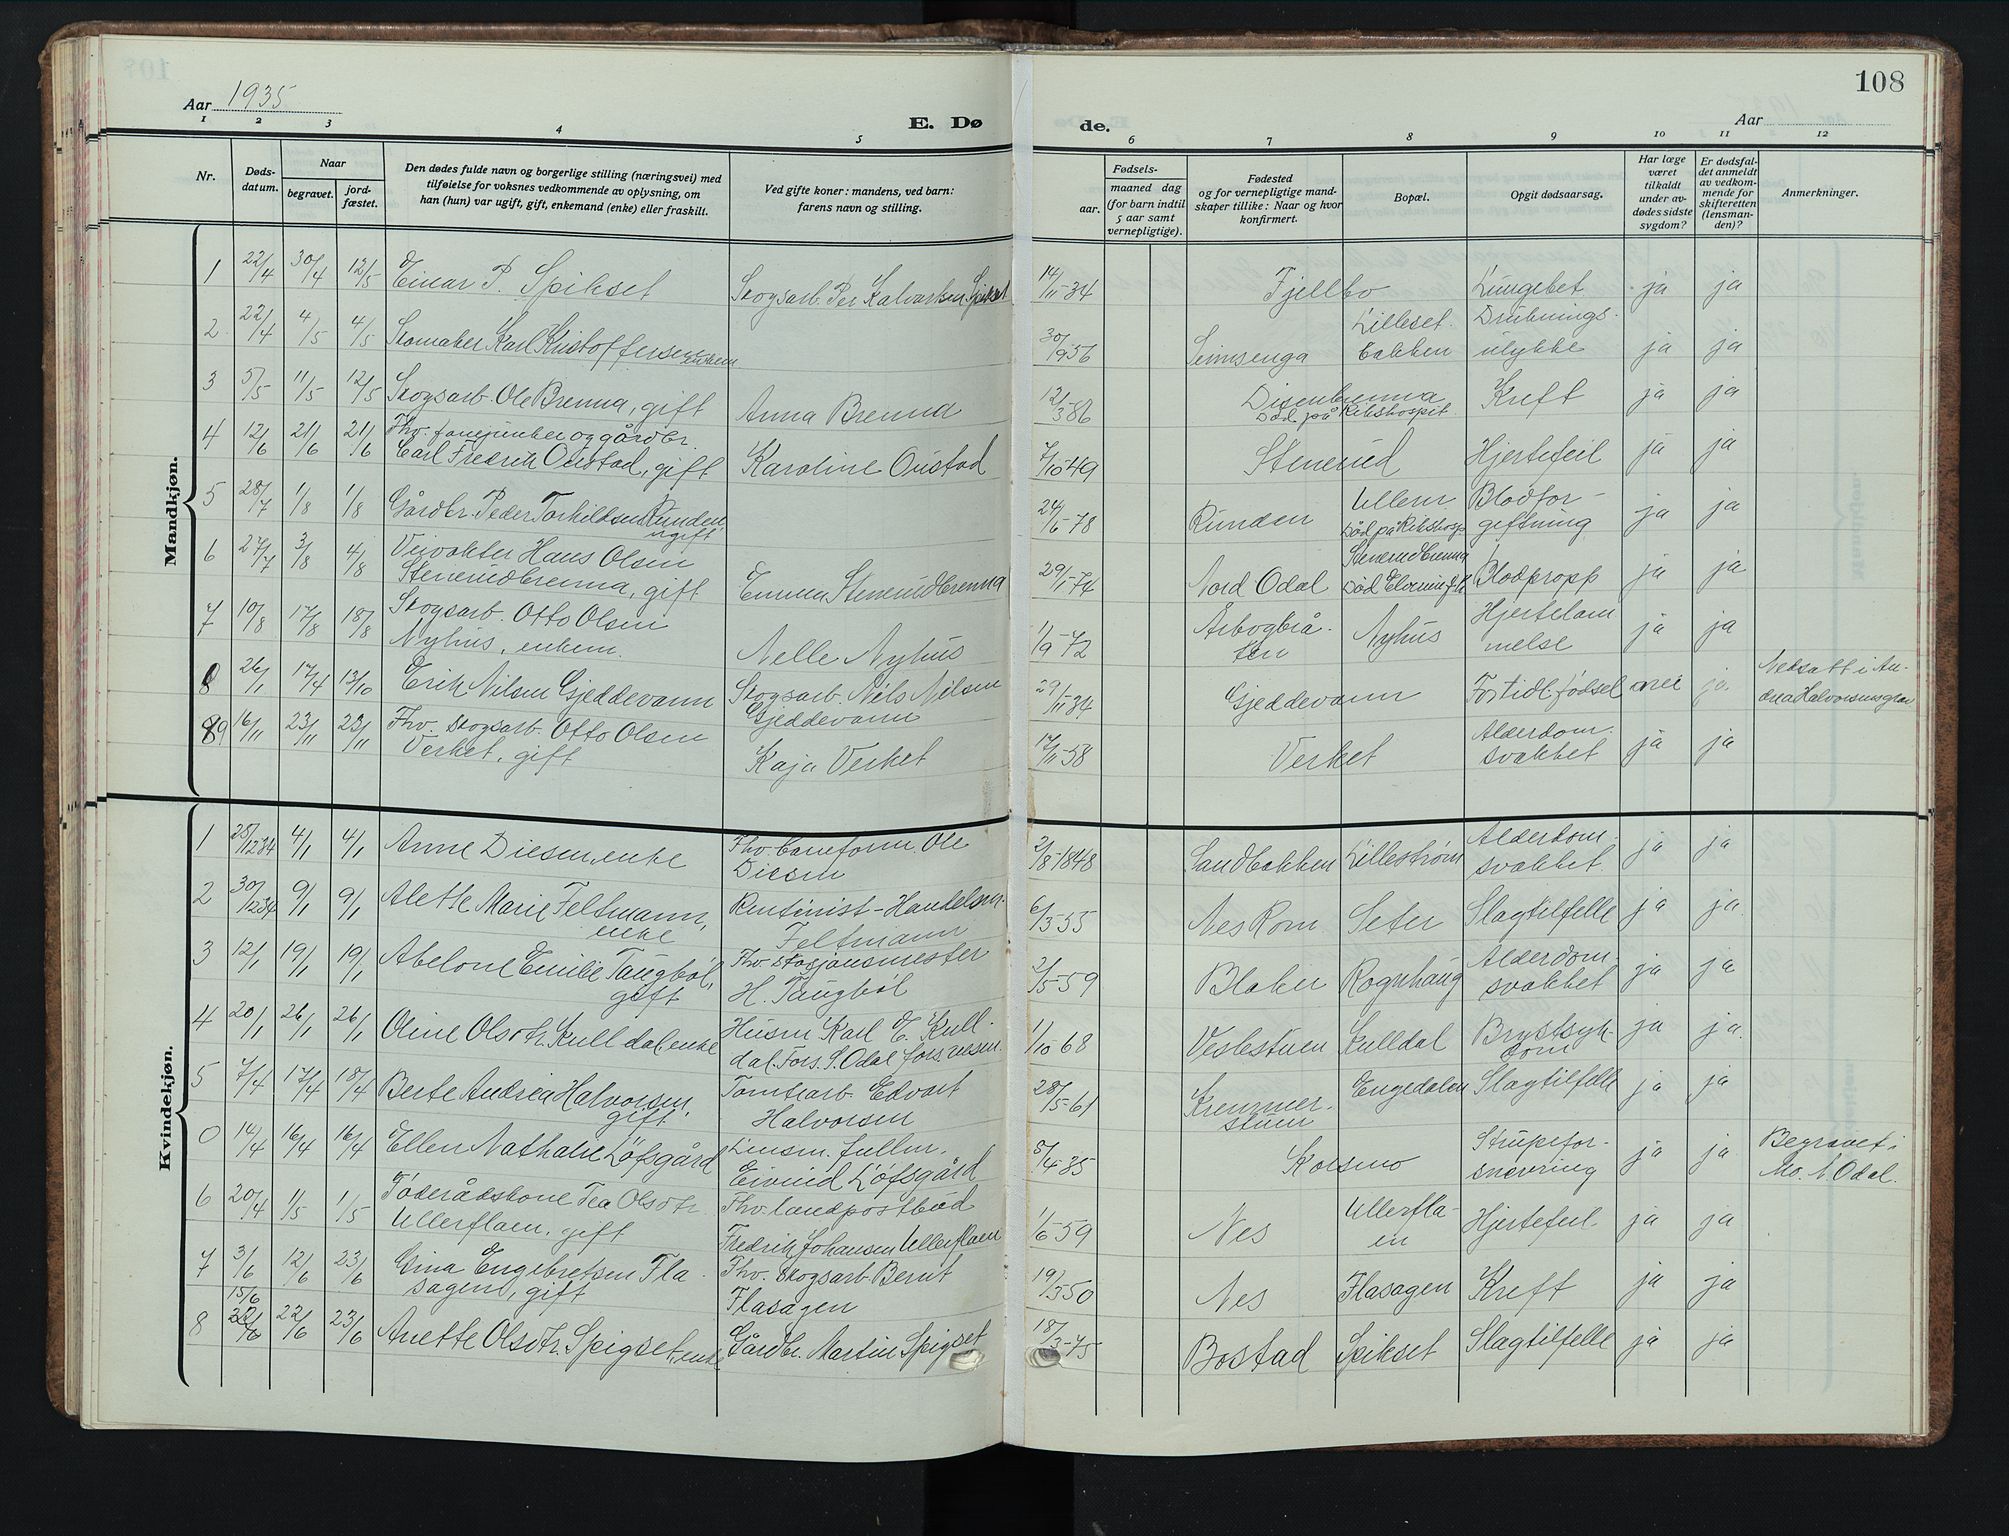 108
Aar 1935
E. Døde.
Aar
1 2 3 4 5 6 7 8 9 10 11 12
Nr.
Døds-
datum.
Naar
begravet.
jord-
fæstet.
Den dødes fulde navn og borgerlige stilling (næringsvei) med
tilføielse for voksnes vedkommende av oplysning, om
han (hun) var ugift, gift, enkemand (enke) eller fraskilt.
Ved gifte koner: mandens, ved barn:
farens navn og stilling.
Fødsels-
aar.
maaned dag
(for barn indtil
5 aar samt
vernepligtige).
Fødested
og for vernepligtige mand-
skaper tillike: Naar og hvor
konfirmert.
Bopæl.
Opgit dødsaarsag.
Har læge
været
tilkaldt
under av-
dødes sidste
sygdom?
Er dødsfal-
det anmeldt
av vedkom-
mende for
skifteretten
(lensman-
den)?
Anmerkninger.
Mandkjøn.
1 22/4 30/4 12/5 Einar P. Spikset Skogsarb. Per Halvorsen Spikset 14/11-34 Fjellbo Lungebet. ja ja
2 22/4 4/5 4/5 Skomaker Karl Kristoffersen enkem 30/1956 Seimsenga Lilleset-
bakken Druknings-
ulykke ja ja
3 5/5 11/5 12/5 Skogsarb. Ole Brenna, gift Anna Brenna 12/3-86 Disenbrenna
Død på Rikshospit. Kreft ja ja
4 12/6 21/6 21/6 Fhv. fanejunker og gårdbr.
Carl Fredrik Oustad, gift Karoline Oustad 7/10-49 Stenerud Hjertefeil ja ja
5 28/7 1/8 1/8 Gårdbr. Peder Torkildsen Runden
ugift 24/6-78 Runden Ullern
Død på Rikshosp. Blodfor-
giftning ja ja
6 27/7 3/8 4/8 Veivokter Hans Olsen
Stenerudbrenna, gift Emma Stenerudbrenna 29/1-74 Nord Odal Stenerudbrenna
Død Blodpropp ja ja
7 10/8 17/8 18/8 Skogsarb. Otto Olsen
Nyhus, enkem. Nelle Nyhus 1/9-72 Årbogbrå-
ten Nyhus Hjertelam
melse ja ja
8 26/1 17/4 13/10 Erik Nilsen Gjeddevann Skogsarb. Nils Nilsen
Gjeddevann 29/11-34 Gjeddevann For tidl. fødsel nei ja Nedsatt i An-
drea Halvorsens grav
89 16/11 23/11 23/11 Fhv. skogsarb. Otto Olsen
Verket, gift Kaja Verket 17/11-58 Verket Alderdom-
svakhet ja ja
Kvindekjøn.
1 25/1234 4/1 4/1 Anne Diesen, enke Fhv. baneform. Ole
Diesen 2/8-1848 Sandbakken Lillestrøm Alderdom-
svakhet. ja ja
2 30/1234 9/1 9/1 Alette Marie Feltmann,
enke Rentenist - Handelsm.
Feltmann 6/3-53 Nes Rom. Seter Slagtilfelle ja ja.
3 12/1 19/1 19/1 Abelone Emilie Taugbøl,
gift Fhv. stasjonsmester
H. Taugbøl 2/5-59 Blaker Rognhaug Alderdom-
svakhet ja ja
4 20/1 26/1 26/1 Oline Olsdtr. Kulldal, enke Husm Karl E. Kull-
dal. Fors. S. Odal forsvesen. 1/10 68 Veslestuen Kulldal Brystsyk-
dom ja ja.
5 7/4 17/4 18/4 Berte Andrea Halvorsen,
gift Tomtearb. Edvart
Halvorsen 28/5-61 Kremmer-
stuen Engedalen Slagtilfelle ja ja
0 14/4 16/4 16/4 Ellen Nathalie Løfsgård Lensm. fullm.
Eivind Løfsgård 5/4-35 Korsmo Strupefor-
snevring ja ja. Begravet i
Mo. N Odal.
6 20/4 1/5 1/5 Føderådskone Tea Olsdtr.
Ullerflaen, gift Fhv. landpostbud
Fredrik Johansen Ullerflaen 1/6-59 Nes Ullerfla-
en Hjertefeil ja ja
7 3/6 12/6 23/6 Gina Engebretsen Fla-
sagen, gift Fhv. Skogsarb. Bernt
Flasagen 19/3-50 Nes Flasagen Kreft ja ja
8 15/6 22/6 23/6 Anette Olsdtr. Spigset, enke Gårdbr. Martin Spigset 18/3-75 Bostad Spikset Slagtilfelle ja ja